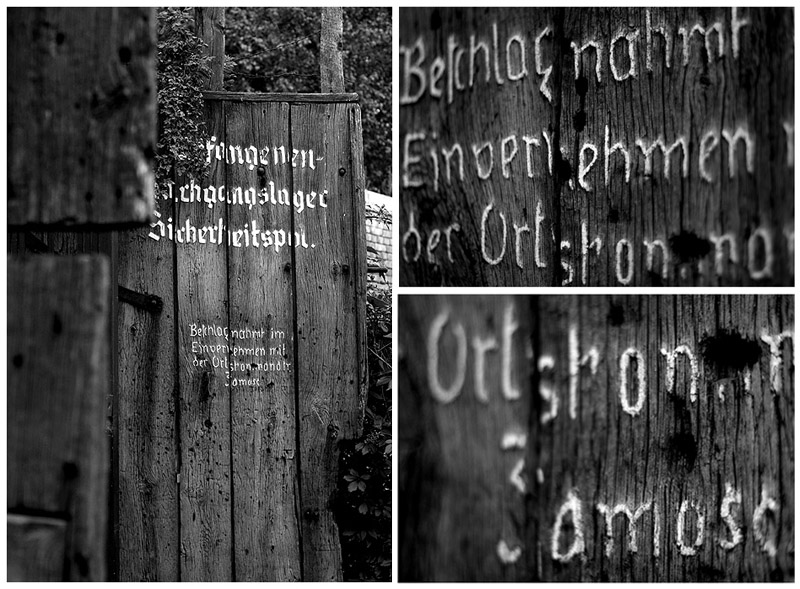 fangenen-
rchgangslager
Sicherheitspol.
Beschlagnahmt im
Einvernehmen mit
der Ortskommandtr
Zamosc
Beschlagnahmt
Einvernehmen
der Ortskomman
Ortskomm
Zamosc